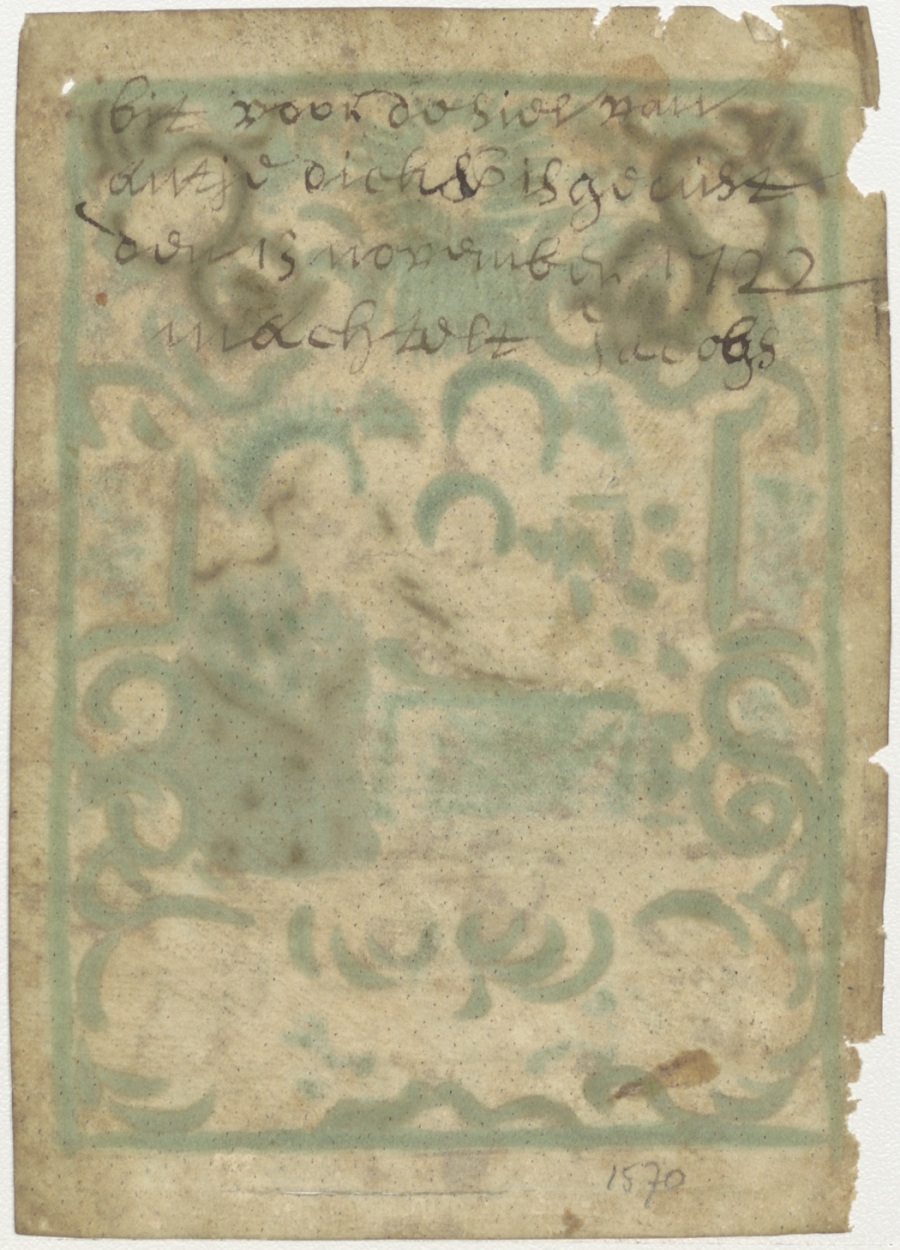 bit voor de siel van
antje dicks is gerust
den 13 november 1722
machtelt Jacobs
1570